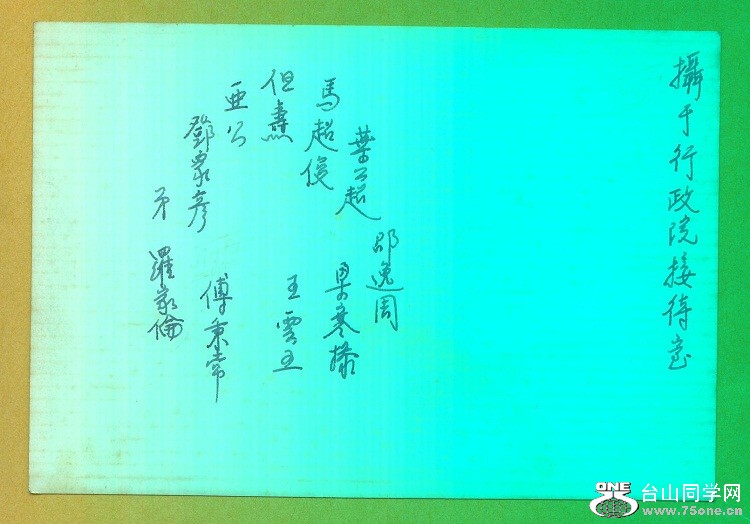 攝于行政院接待室
邵逸周
葉公超
梁寒操
馬超俊
王雲五
但燾
亜公
傅秉常
鄧家彦
羅家倫
弟
ONE
台山同学网
www.75one.cn